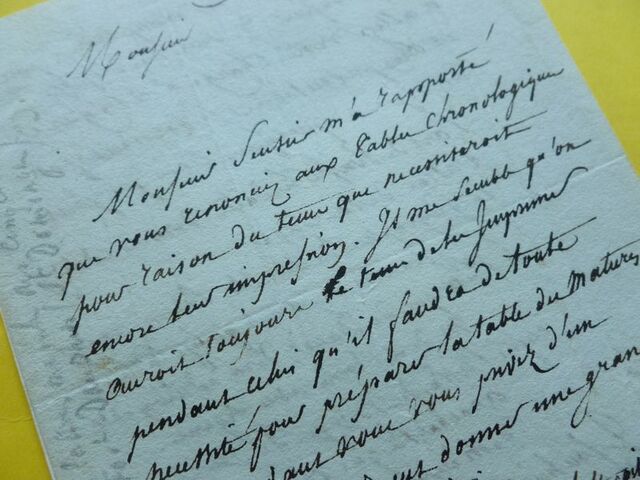 Monsieur
Monsieur m'a rapporté
que vous renonciez aux Tables Chronologiques
pour raison du tems que necessiteroit
encore leur impression. Il me semble qu'on
auroit toujours le tems de les Imprimer
pendant celui qu'il faudra de toute
necessité pour préparer la table des Matieres
vous vous privez d'un
donner une gran